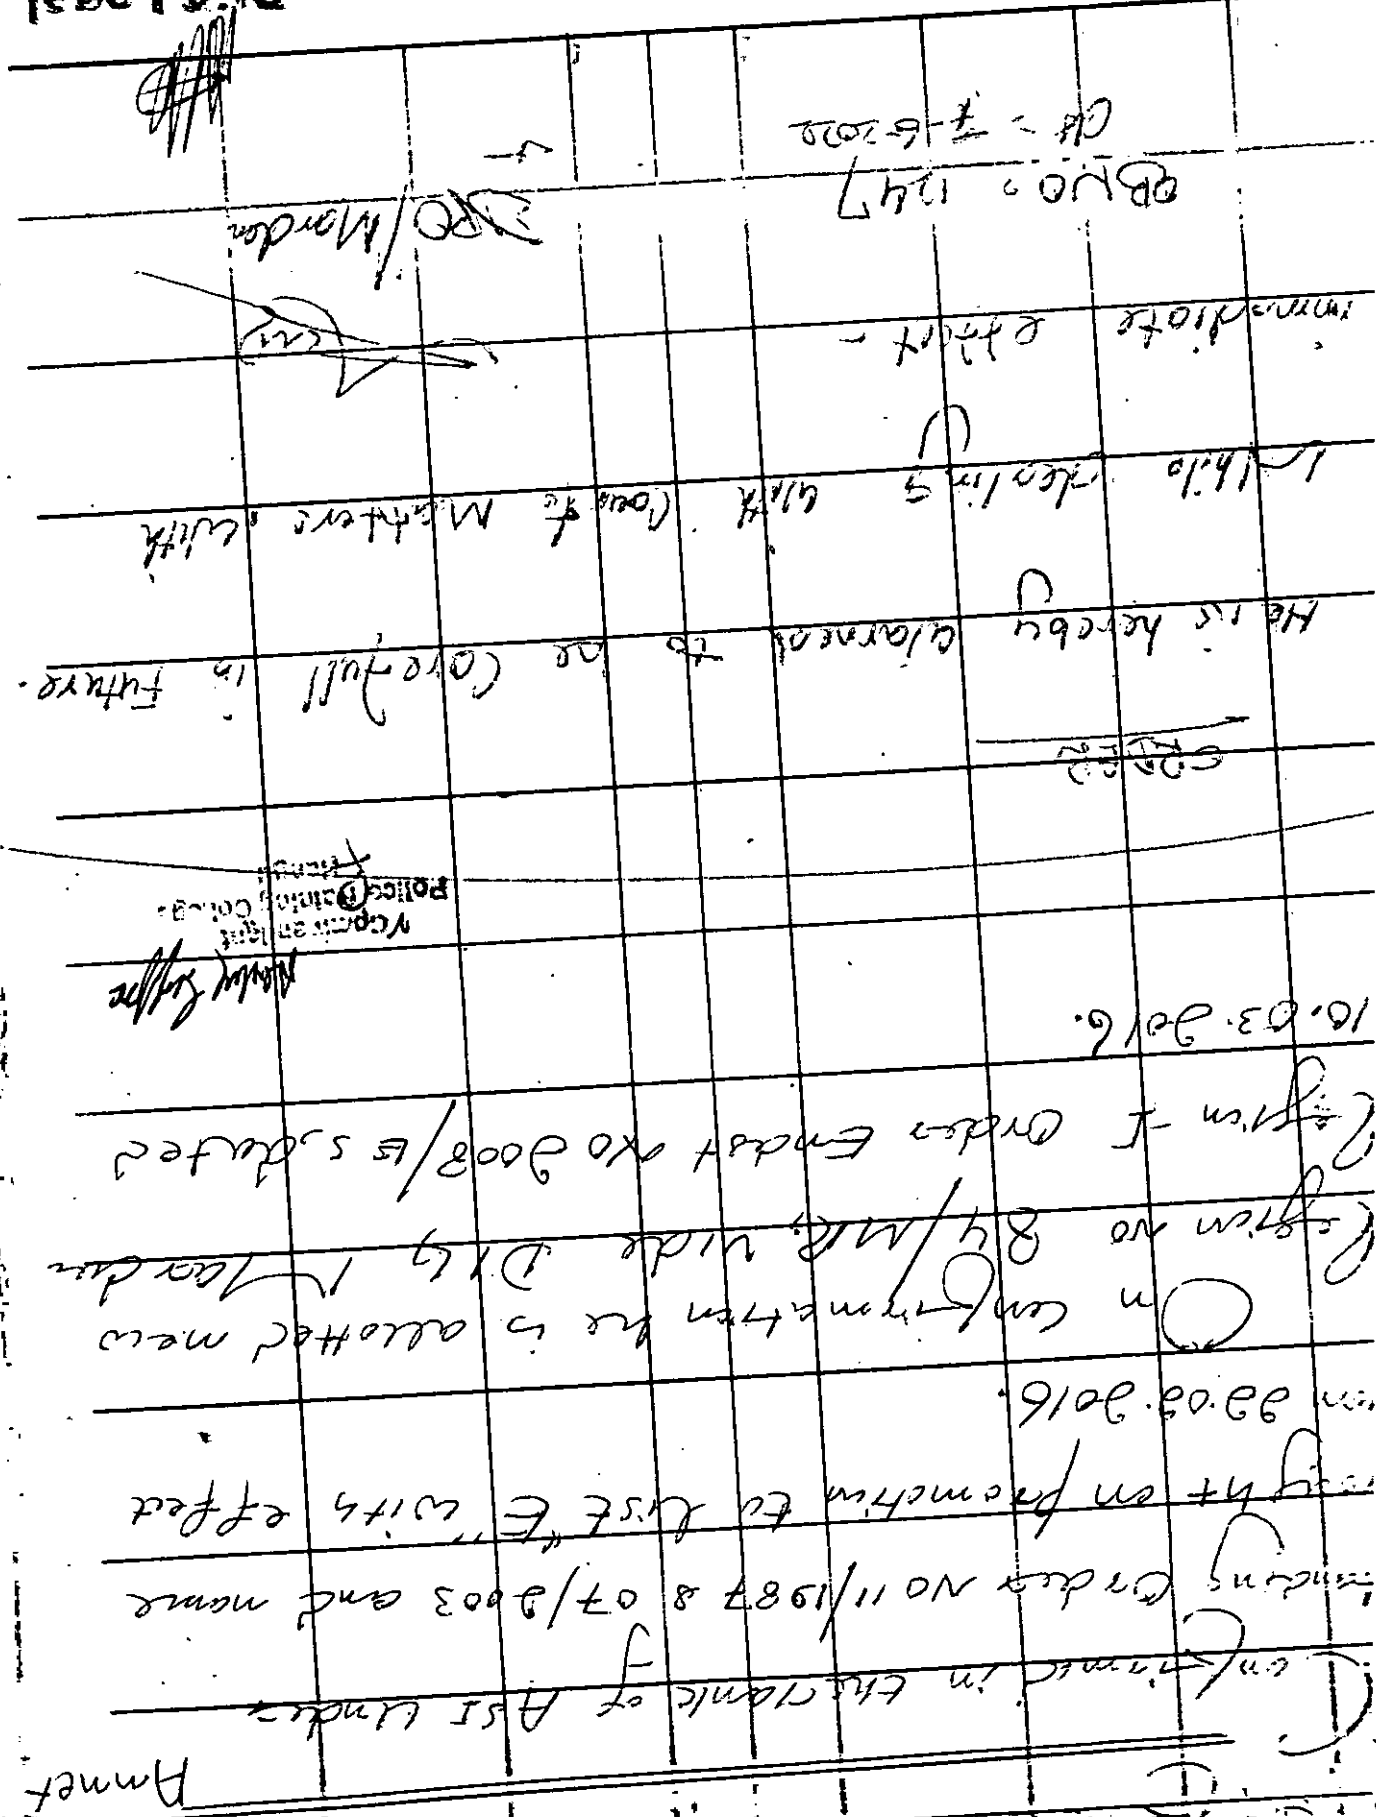 Confirmed in the rank of ASI under
Order No 11/1987 & 07/2003 and name
on promotion to list "E" with effect
22.02.2016.
On confirmation he is allotted new
Region No 84/MR, vide DIG Mardan
Region-I Order Endst No 2008/ES, dated
10.03.2016.
Commandant
Police Training College
Hangu
ORDER
He is hereby warned to be Carefull in Future.
while dealing with Courts Matters with
immediate effect-
OB NO = 1247
DPO/Mardan
dt = 7-6-2022